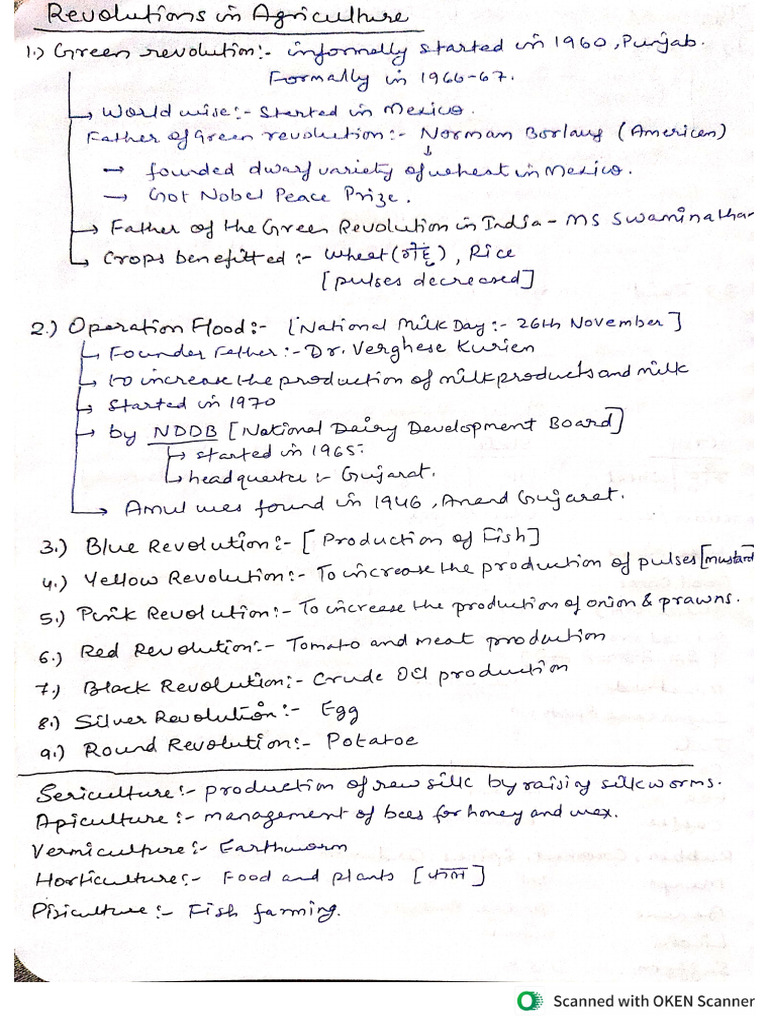 Revolutions in Agriculture
1.) Green revolution:- informally started in 1960, Punjab.
Formally in 1966-67.
→ World wise:- Started in Mexico.
Father of Green revolution:- Norman Borlaug (American)
↓
→ founded dwarf variety of wheat in Mexico.
→ Got Nobel Peace Prize.
→ Father of the Green Revolution in India - MS Swaminathan
→ Crops benefitted :- Wheat (गेहूँ), Rice
[pulses decreased]
2.) Operation Flood:- [National Milk Day:- 26th November]
→ Founder Father:- Dr. Verghese Kurien
→ to increase the production of milk products and milk
→ Started in 1970
→ by NDDB [National Dairy Development Board]
→ started in 1965:
→ headquarter :- Gujarat.
→ Amul was found in 1946, Anand Gujarat.
3.) Blue Revolution:- [Production of Fish]
4.) Yellow Revolution:- To increase the production of pulses [mustard]
5.) Pink Revolution:- To increase the production of onion & prawns.
6.) Red Revolution:- Tomato and meat production
7.) Black Revolution:- Crude Oil production
8.) Silver Revolution:- Egg
9.) Round Revolution:- Potatoe
Sericulture:- production of raw silk by raising silkworms.
Apiculture:- management of bees for honey and wax.
Vermiculture:- Earthworm
Horticulture:- Food and plants [फल]
Pisiculture:- Fish farming.
Scanned with OKEN Scanner